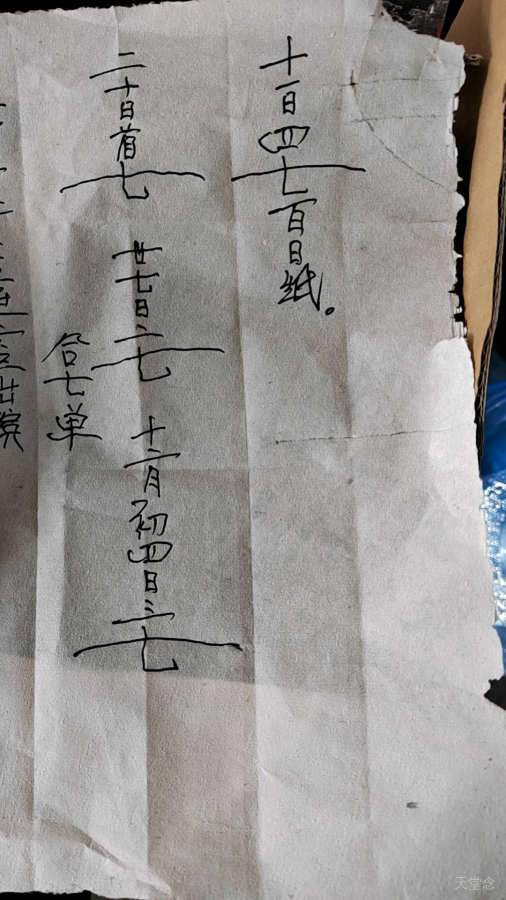 出殡
合七单
二十日首七 廿七日二七 十二月初四日三七
十一日四七百日纸。
天堂念